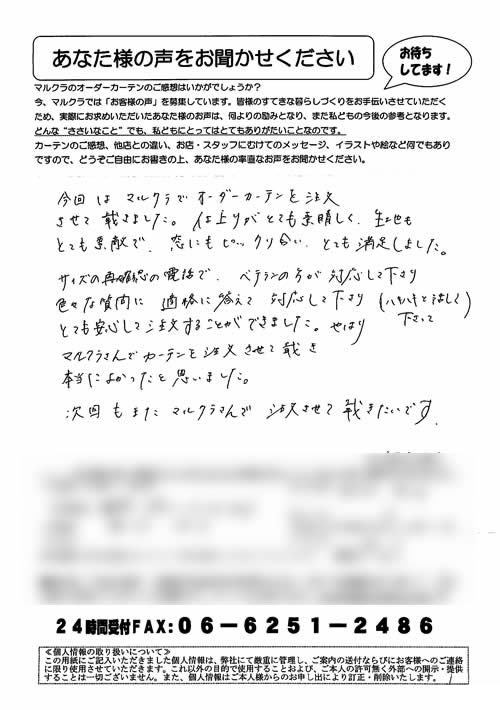 あなた様の声をお聞かせください
お待ち
してます!
マルクラのオーダーカーテンのご感想はいかがでしょうか?
今、マルクラでは「お客様の声」を募集しています。皆様のすてきな暮らしづくりをお手伝いさせていただく
ため、実際にお求めいただいたあなた様のお声は、何よりの励みとなり、また私どもの今後の参考となります。
どんな“ささいなこと”でも、私どもにとってはとてもありがたいことなのです。
カーテンのご感想、他店との違い、お店・スタッフにむけてのメッセージ、イラストや絵など何でもあり
ですので、どうぞご自由にお書きの上、あなた様の率直なお声をお聞かせください。
今回は マルクラでオーダーカーテンを注文
させて戴きました。仕上りがとても素晴しく、生地も
とても素敵で、窓にもピックリ合い、とても満足しました。
サイズの再確認の電話で、ベテランの方が対応して下さり
色々な質問に 適格に答えて 対応して下さり (ハキハキと話して
下さって)
とても安心して注文することができました。やはり
マルクラさんでカーテンを注文させて戴き
本当によかったと思いました。
次回もまた マルクラさんで 注文させて戴きたいです。
24時間受付FAX:06-6251-2486
≪個人情報の取り扱いについて≫
この用紙にご記入いただきました個人情報は、弊社にて厳重に管理し、ご案内の送付ならびにお客様へのご連絡
に限り使用させていただきます。これ以外の目的で使用することおよび、ご本人の許可無く外部への開示・提供
することは一切ございません。また、個人情報はご本人様からのお申し出により訂正・削除いたします。